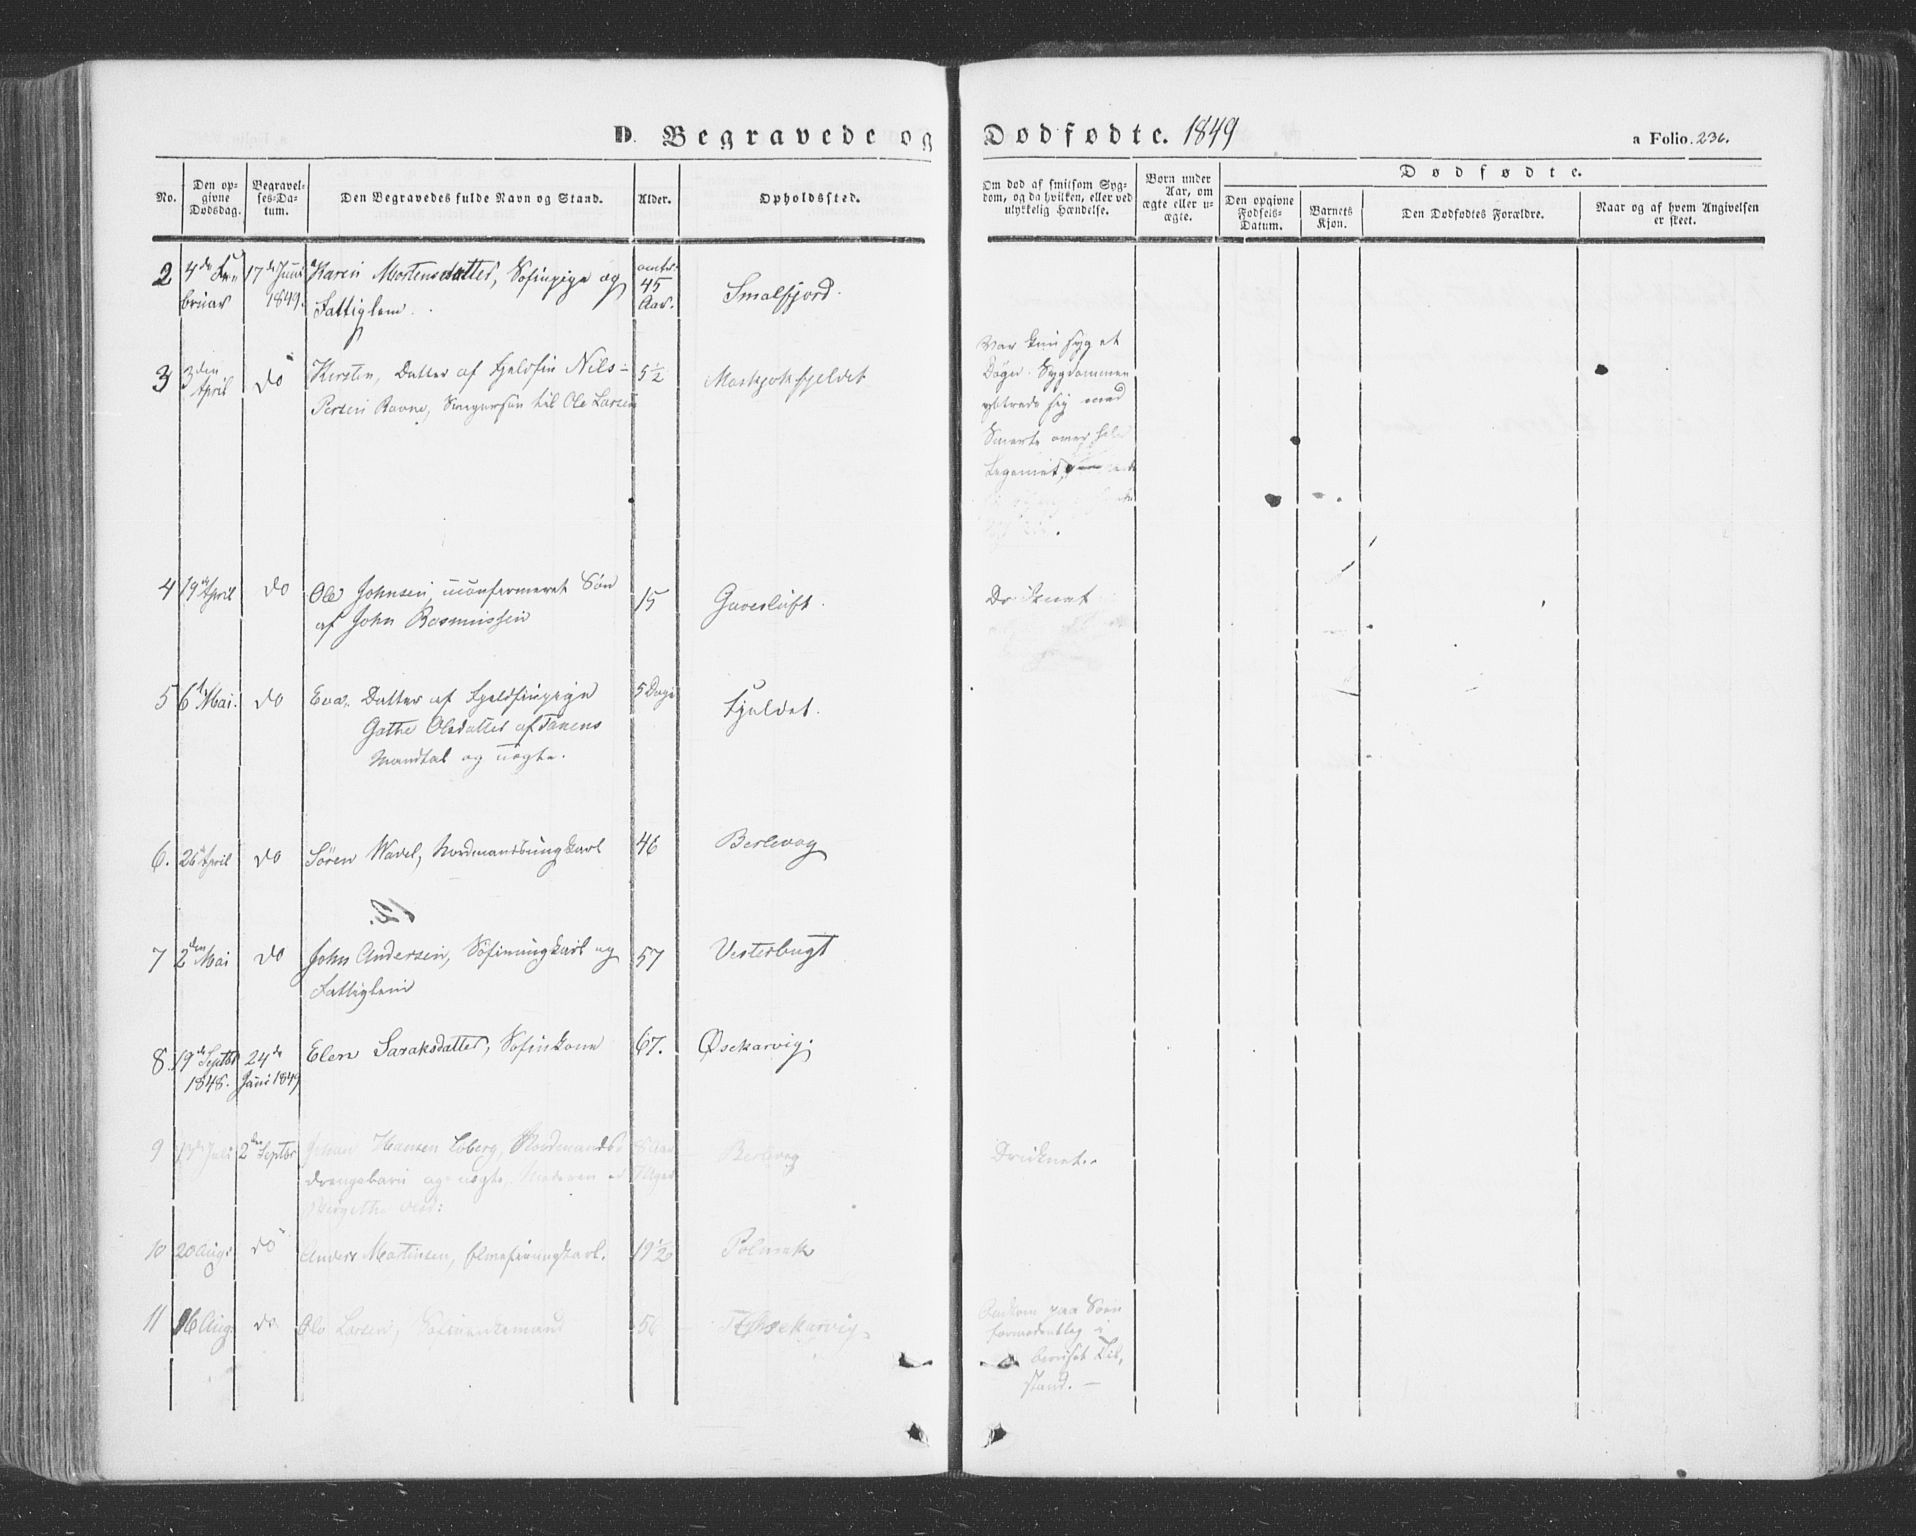 D. Begravede og Dødfødte. 1849
a Folio. 236.
No.
Den opgivne Dødsdag.
Begravelses-Datum.
Den Begravedes fulde Navn og Stand.
Alder.
Opholdssted.
Om død af smitsom Sygdom, og da hvilken, eller ved ulykkelig Hændelse.
Born under Aar, om ægte eller uægte.
Dødfødte.
Den opgivne Fødsels-Datum.
Barnets Kjøn.
Den Dødfødtes Forældre.
Naar og af hvem Angivelsen er skeet.
2 4de Februar 17de Juni 1849. Karen Mortensdatter, Søfinpige og Fattiglem. omtr. 45 Aar. Smalfjord.
3 3den April do Kirsten, Datter af Fjeldfin Nils Persen Ravne, Svigersøn til Ole Larsen 5½ Maskjokfjeldet
Var kun syg et
Døgn. Sygdommen
yttrede sig med
Smerte over hele
Legemet,
4 19de April do Ole Johnsen, uconfirmeret Søn
af John Rasmussen 15 Gavesluft.
Druknet
5 6te Mai. do Eva, Datter af Fjeldfinpige
Gathe Olsdatter af Tanens
Mandtal og uægte. 5 Dage Fjeldet.
6. 26 April do Søren Wadel, Nordmandsungkarl 46 Berlevog
7 2den Mai do John Andersen, Søfinungkarl og
Fattiglem 57 Vesterbugt
8. 19de Septbr 1848. 24de Juni 1849 Elen Saraksdatter, Søfinkone 67. Øsekarvig.
9 Juli 2den Septbr Johan Hansen Loberg, Nordmands
drengebarn og uægte, Moderen er
8 Aar Berlevog
Druknet.
10 20 Aug: do Anders Martinsen, Elvefinungkarl. 19½ Polmak
11 16 Aug: do Ole Larsen, Søfinenkemand 56 Øsekarvig
Omkom paa Søen
formodentlig i
beruset Til-
stand. —